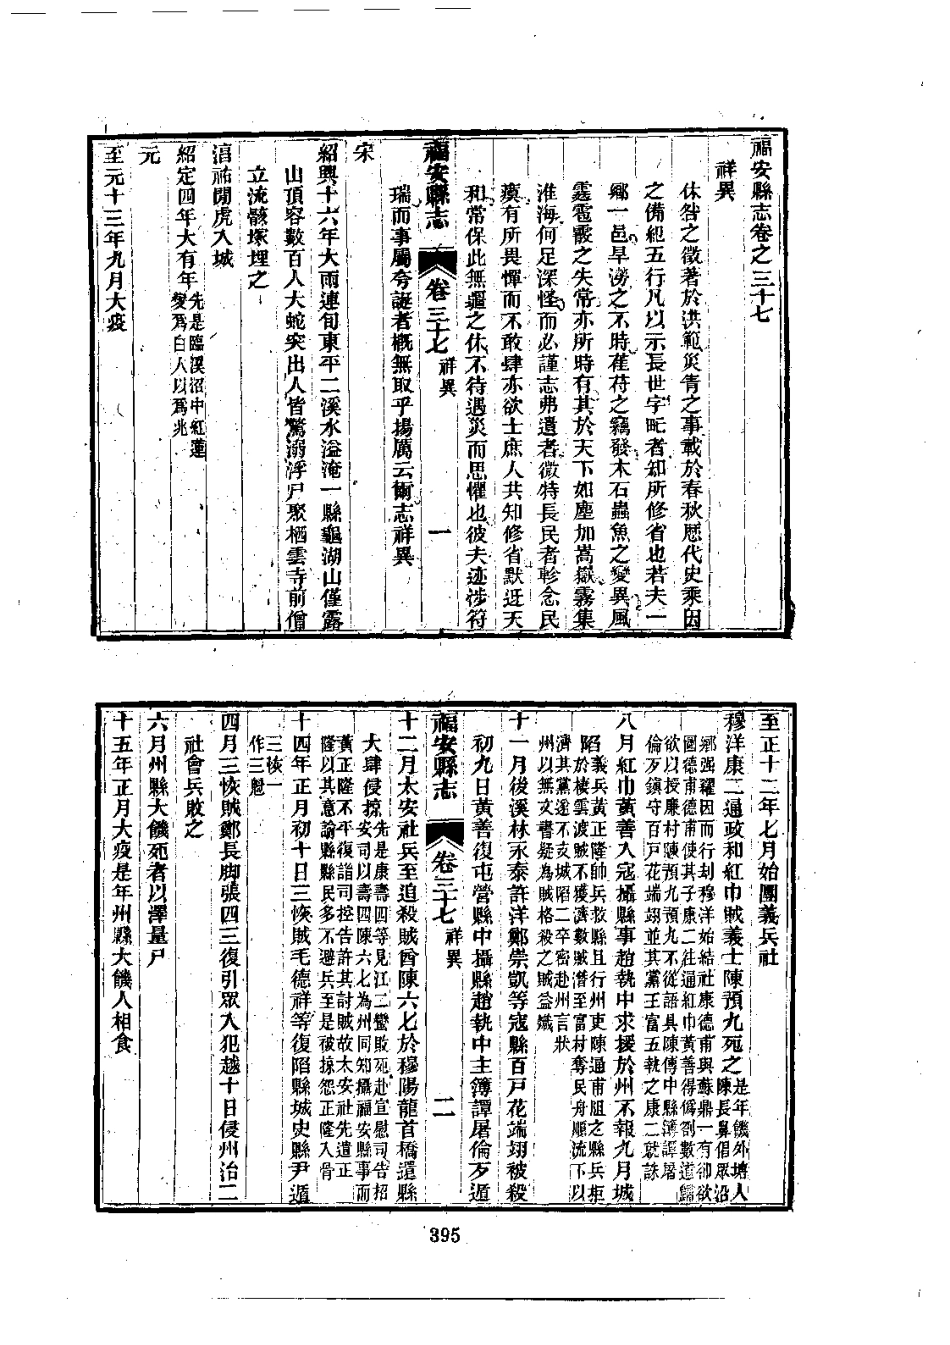 福安縣志卷之三十七
祥異
休咎之徵著於洪範災眚之事載於春秋歷代史乘因
之備紀五行凡以示長世字甿者知所修省也若夫一
鄉一邑旱澇之不時萑苻之竊發木石蟲魚之變異風
霆雹霰之失常亦所時有其於天下如塵加嵩嶽霧集
淮海何足深怪而必謹志弗遺者微特長民者軫念民
瘼有所畏憚而不敢肆亦欲士庶人共知修省默迓天
和常保此無疆之休不待遇災而思懼也彼夫迹涉符
福安縣志 卷三十七 祥異 一
瑞而事屬夸誕者概無取乎揚厲云爾志祥異
宋
紹興十六年大雨連旬東平二溪水溢淹一縣龜湖山僅露
山頂容數百人大蛇突出人皆驚溺浮尸聚栖雲寺前僧
立流骸塚埋之
淳祐間虎入城
紹定四年大有年先是臨溪沼中紅蓮
變為白人以為兆
元
至元十三年九月大疫
至正十二年七月始團義兵社
穆洋康二通政和紅巾賊義士陳預九死之是年饑外塘人
陳長鼻倡眾沿
鄉強糴因而行刦穆洋始結社康德甫與蘇鼎一有卻欲
圖德甫德甫使其子康二往通紅巾黃善得偽劄數道歸
欲以授康村陳預九預九不從語具陳傳中縣簿譚屠
倫歹鎮守百戸花端翊並其黨王富五執之康二就誅
八月紅巾黃善入寇攝縣事趙執中求援於州不報九月城
陷義兵黃正隆帥兵救縣且行州吏陳通甫阻之縣兵拒
於棲雲渡賊不獲濟數賊潛至富村奪民舟順流下以
濟其黨遂不支城陷二卒密赴州言狀
州以無文書疑為賊格殺之賊益熾
十一月後溪林永泰許洋鄭崇凱等寇縣百戸花端翊被殺
初九日黃善復屯營縣中攝縣趙執中主簿譚屠倫歹遁
福安縣志 卷三十七 祥異 二
十二月太安社兵至追殺賊酋陳六七於穆陽龍首橋還縣
大肆侵掠先是康壽四等見江二蠻敗死赴宣慰司告招
安司以壽四陳六七為州同知攝福安縣事而
黃正隆不平復詣司控告許其討賊故太安社先遣正
隆以其意諭縣縣民多不避兵至是被掠怨正隆入骨
十四年正月初十日三恢賊毛德祥等復陷縣城史縣尹遁
三恢一
作三魁
四月三恢賊鄭長脚張四三復引眾入犯越十日侵州治二
社會兵敗之
六月州縣大饑死者以澤量尸
十五年正月大疫是年州縣大饑人相食
395